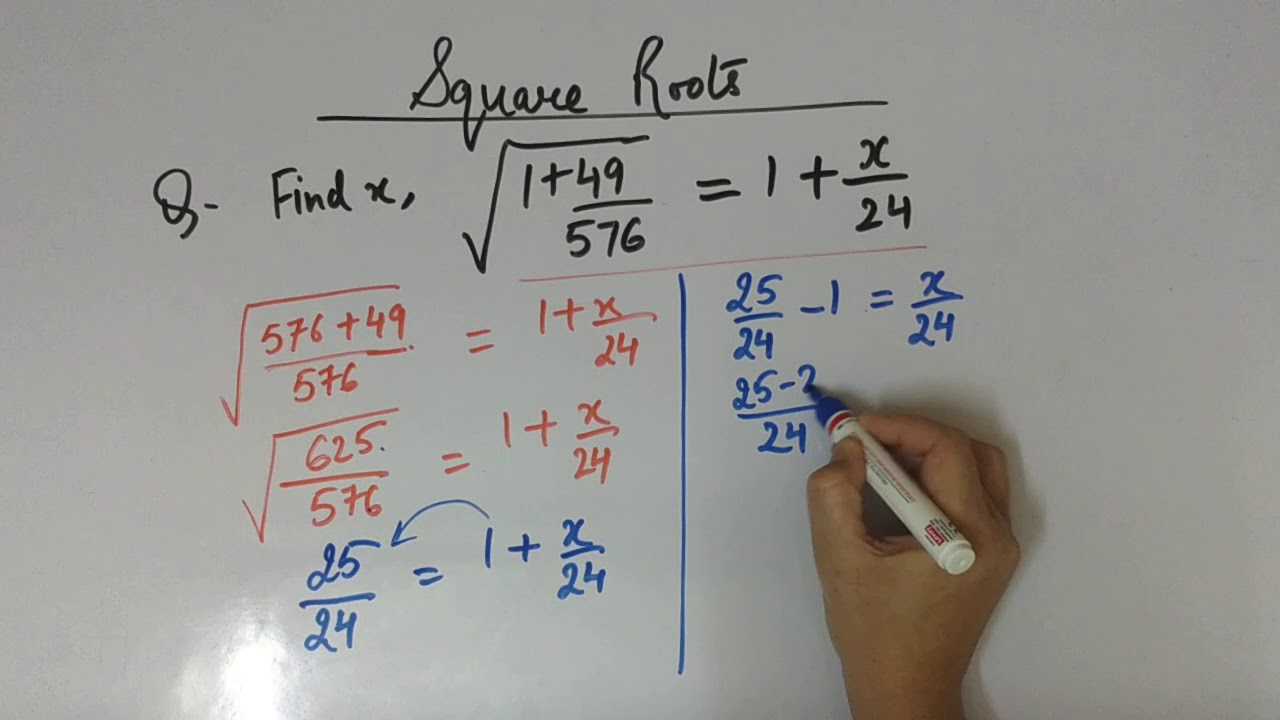 Square Roots
Q- Find x, √(1+49/576) = 1 + x/24
√((576+49)/576) = 1+x/24
√(625/576) = 1 + x/24
25/24 = 1 + x/24
25/24 - 1 = x/24
25-2/24